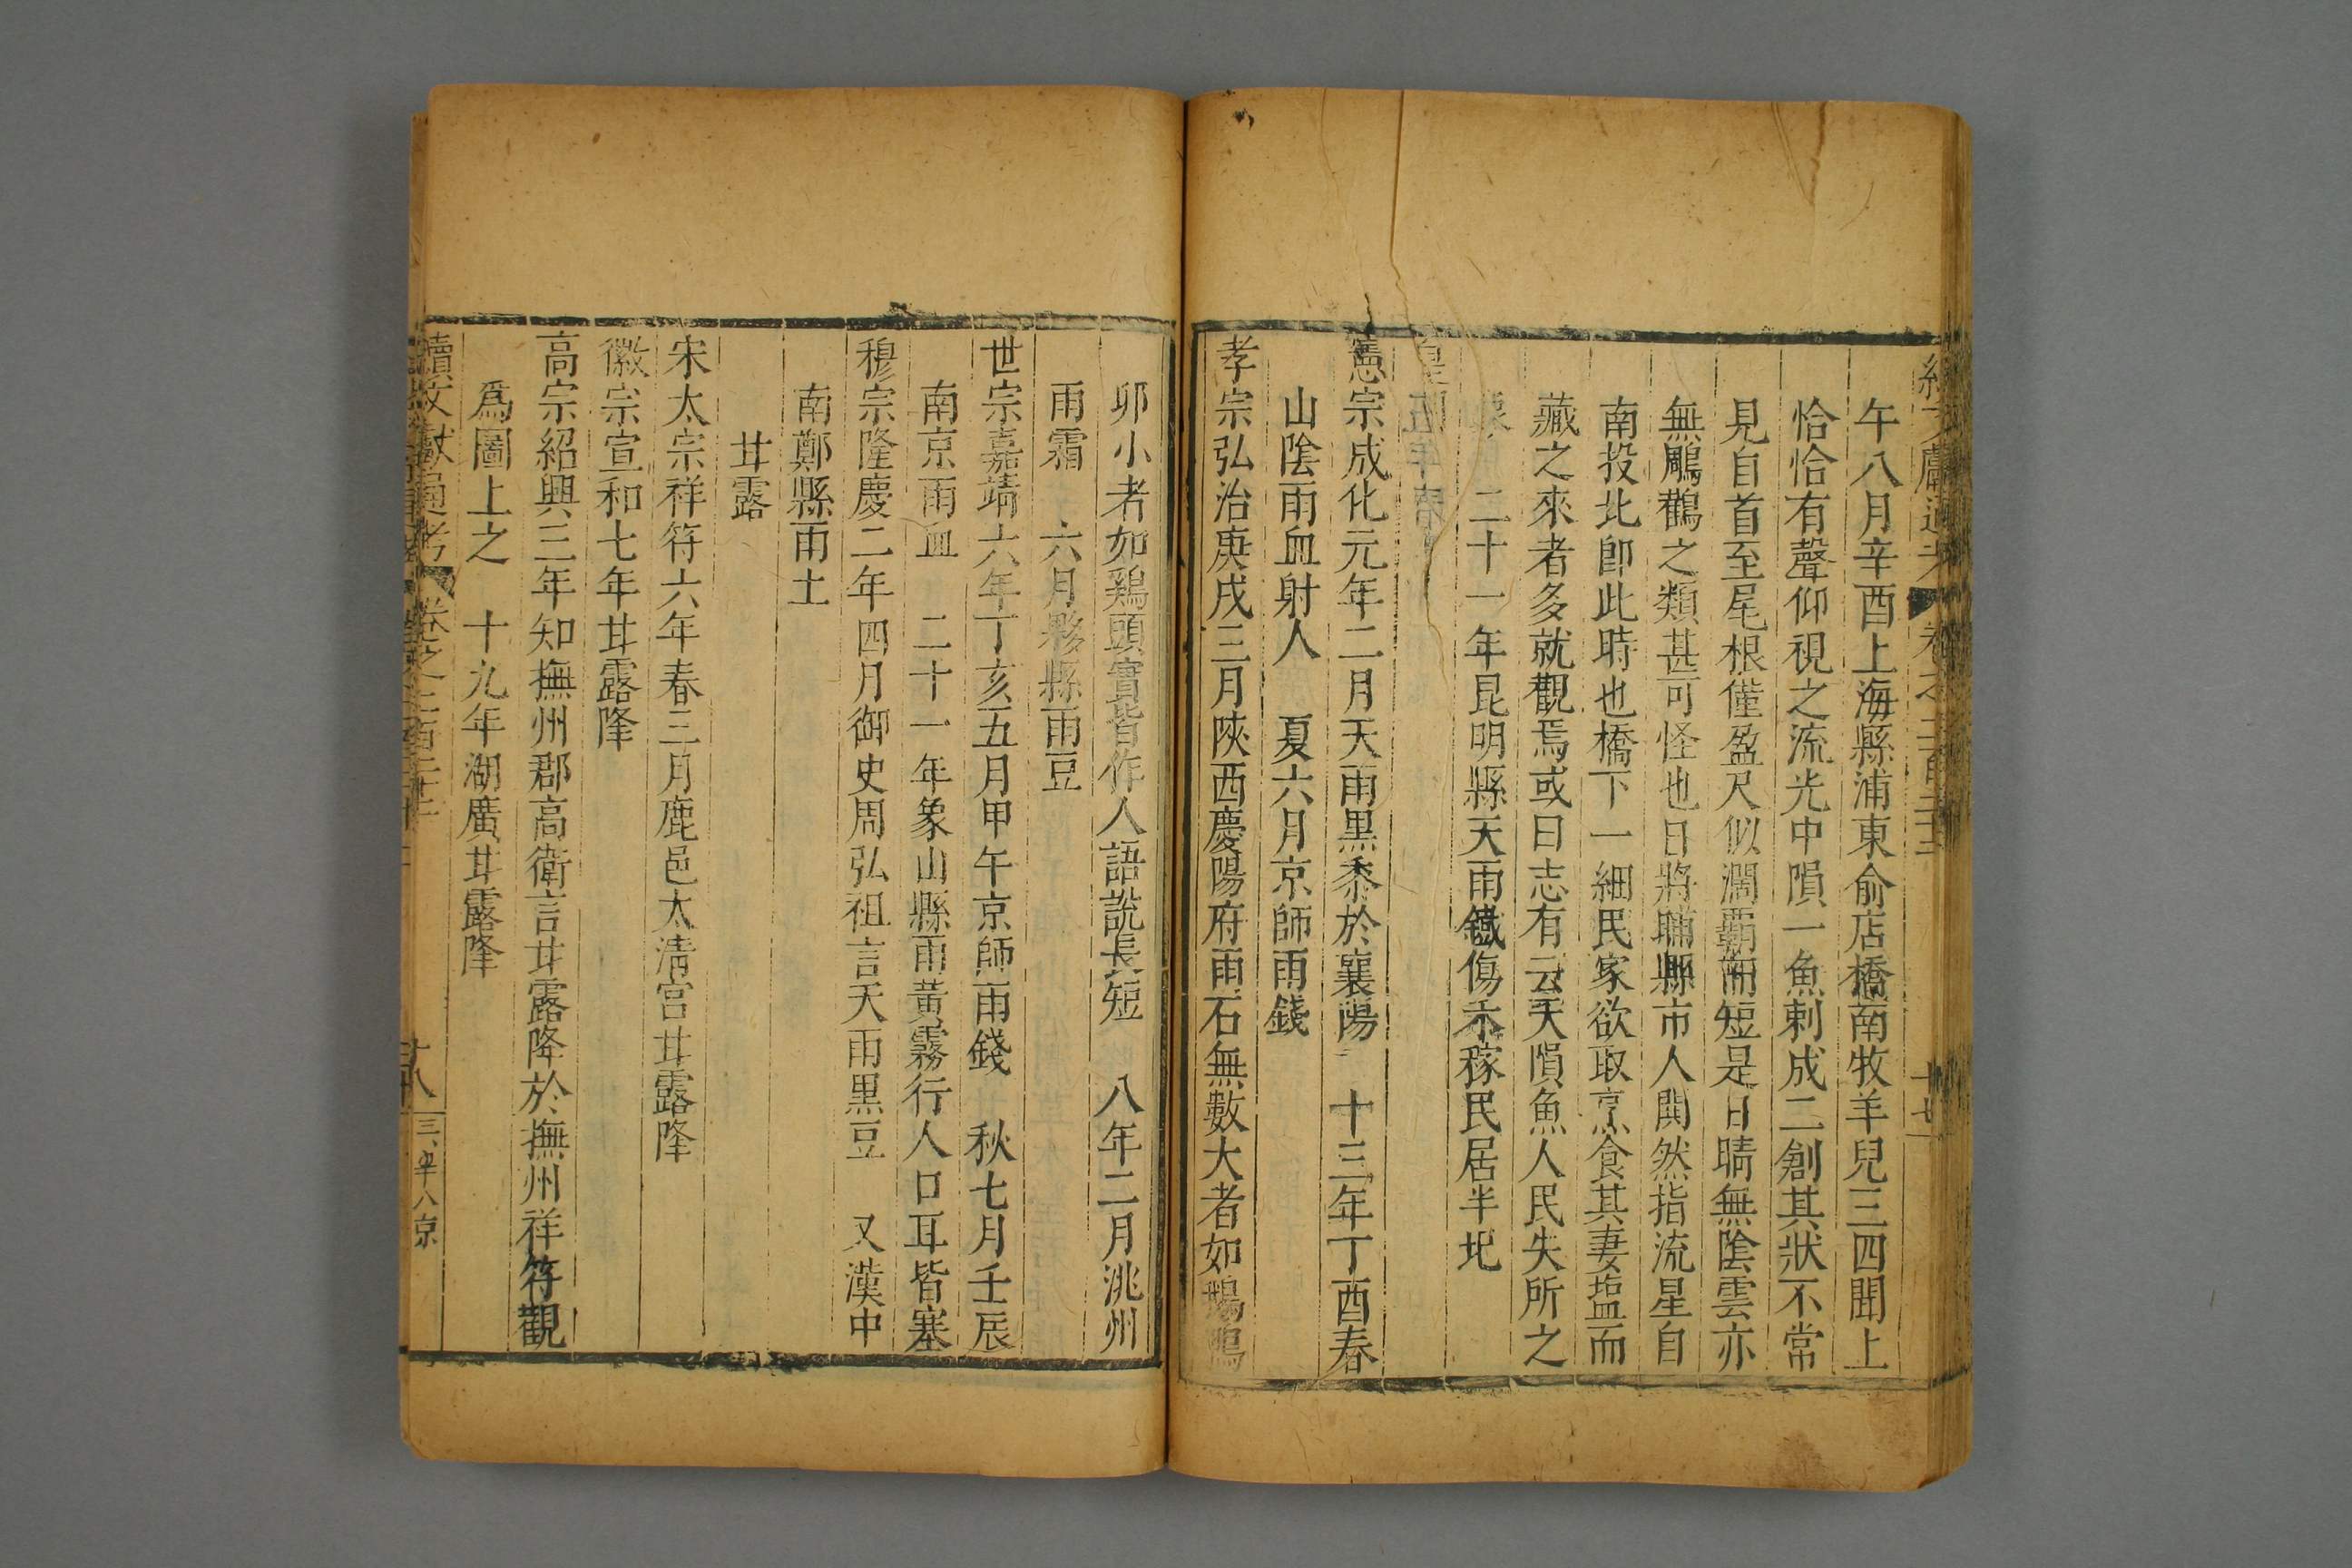 午八月辛酉上海縣浦東俞店橋南牧羊兒三四聞上
恰恰有聲仰視之流光中隕一魚刺成二創其狀不常
見自首至尾根僅盈尺似濶覇而短是日晴無陰雲亦
無鵰鸛之類甚可怪也日將晡縣市人閧然指流星自
南投北卽此時也橋下一細民家欲取烹食其妻塩而
藏之來者多就觀焉或曰志有云天隕魚人民失所之
二十一年昆明縣天雨鐵傷禾稼民居半圮
憲宗成化元年二月天雨黑黍於襄陽 十三年丁酉春
山陰雨血射人 夏六月京師雨錢
孝宗弘治庚戌三月陝西慶陽府雨石無數大者如鵝
卯小者如鷄頭實皆作人語說長短 八年二月洮州
雨霜 六月黟縣雨豆
世宗嘉靖六年丁亥五月甲午京師雨錢 秋七月壬辰
南京雨血 二十一年象山縣雨黃霧行人口耳皆塞
穆宗隆慶二年四月御史周弘祖言天雨黑豆 又漢中
南鄭縣雨土
甘露
宋太宗祥符六年春三月鹿邑太淸宮甘露降
徽宗宣和七年甘露降
高宗紹興三年知撫州郡高衛言甘露降於撫州祥符觀
爲圖上之 十九年湖廣甘露降
續文獻通考 卷之二百二十 十八